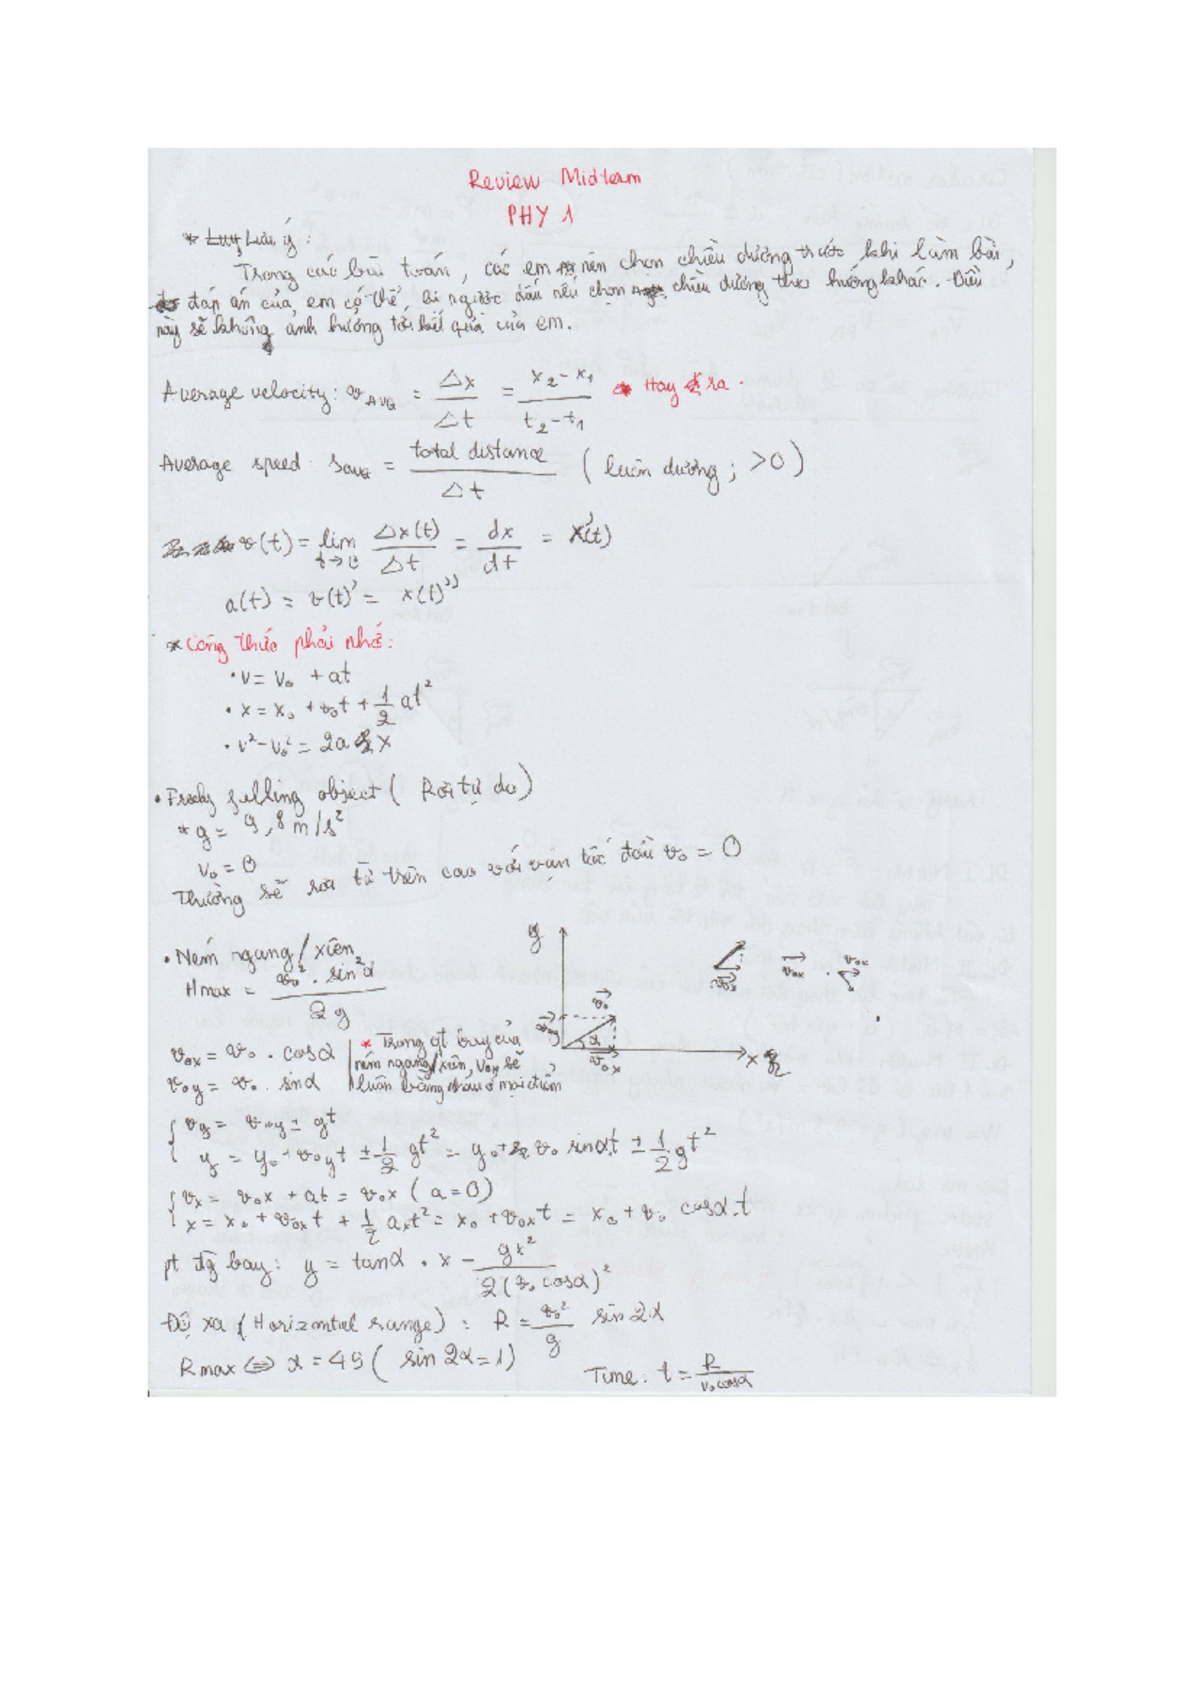 Review Midterm
PHY 1
* Lưu ý:
Trong các bài toán, các em nên chọn chiều dương trước khi làm bài,
đáp án của em có thể bị ngược dấu nếu chọn chiều dương theo hướng khác. Điều
này sẽ không ảnh hưởng tới kết quả của em.
Average velocity: v_AVG = Δx/Δt = (x₂-x₁)/(t₂-t₁) * Hay ra.
Average speed s_avg = total distance/Δt (luôn dương; >0)
v(t) = lim Δx(t)/Δt = dx/dt = x'(t)
a(t) = v(t)' = x(t)''
* Công thức phải nhớ:
• v = v₀ + at
• x = x₀ + v₀t + 1/2 at²
• v²-v₀² = 2a x
• Freely falling object (Rơi tự do)
* g = 9,8 m/s²
v₀ = 0
Thường sẽ rơi từ trên cao với vận tốc đầu v₀ = 0
• Ném ngang/xiên
Hmax = v₀².sin²α/2g
y
v₀
α
v₀x
x
v₀x = v₀.cosα
v₀y = v₀.sinα
* Trong qt bay của
ném ngang/xiên, v₀x sẽ
luôn bằng nhau ở mọi điểm
{ vy = v₀y ± gt
{ y = y₀+v₀yt ± 1/2 gt² = y₀+ v₀ sinα.t ± 1/2 gt²
{ vx = v₀x + at = v₀x (a=0)
{ x = x₀ + v₀xt + 1/2 axt² = x₀ + v₀xt = x₀ + v₀ cosα.t
pt đg bay: y = tanα . x - gx²/2(v₀ cosα)²
Độ xa (Horizontal range): R = v₀²/g sin2α
Rmax ⇔ α = 45 (sin 2α=1)
Time: t = R/v₀cosα